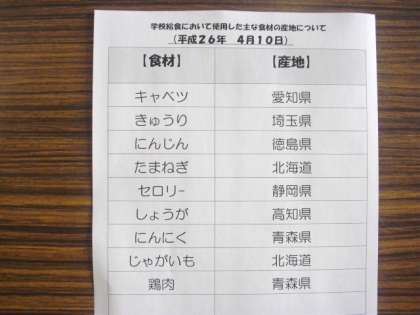 学校給食において使用した主な食材の産地について
(平成26年 4月10日)
【食材】 【産地】
キャベツ 愛知県
きゅうり 埼玉県
にんじん 徳島県
たまねぎ 北海道
セロリー 静岡県
しょうが 高知県
にんにく 青森県
じゃがいも 北海道
鶏肉 青森県